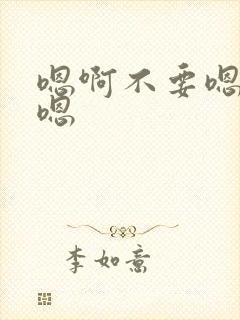 嗯啊不要嗯
嗯
李如意